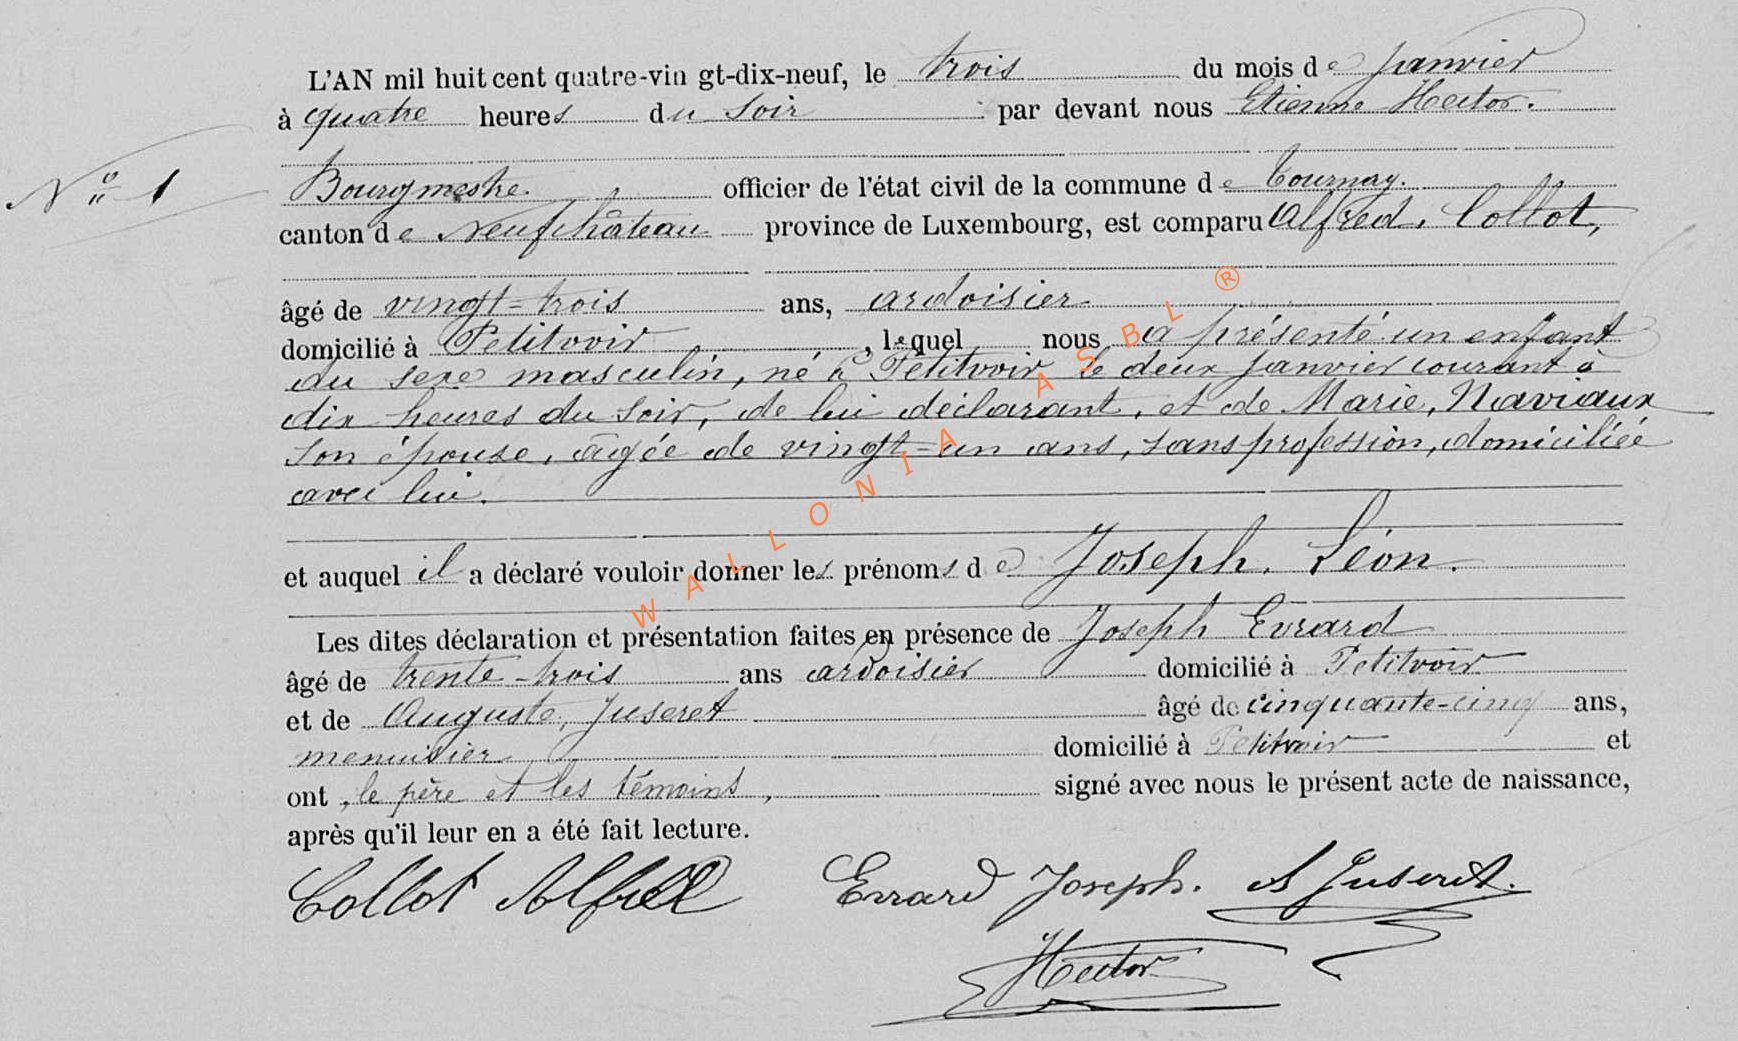 L'AN mil huit cent quatre-vingt-dix-neuf, le trois du mois de Janvier
à quatre heures du soir par devant nous Etienne Hector.
N° 1
Bourgmestre officier de l'état civil de la commune de Tournay.
canton de Neufchâteau province de Luxembourg, est comparu Alfred, Collot,
âgé de vingt-trois ans, ardoisier
domicilié à Petitvoir, lequel nous a présenté un enfant
du sexe masculin, né à Petitvoir le deux janvier courant à
dix heures du soir, de lui déclarant, et de Marie, Naviaux
son épouse, agée de vingt-un ans, sans profession, domiciliée
avec lui.
et auquel il a déclaré vouloir donner les prénoms de Joseph, Léon.
Les dites déclaration et présentation faites en présence de Joseph Evrard
âgé de trente-trois ans ardoisier domicilié à Petitvoir
et de Auguste, Juseret âgé de cinquante-cinq ans,
menuisier domicilié à Petitvoir et
ont, le père et les témoins, signé avec nous le présent acte de naissance,
après qu'il leur en a été fait lecture.
Collot Alfred Evrard Joseph. A Juseret.
Hector
WALLONIA ASBL ®